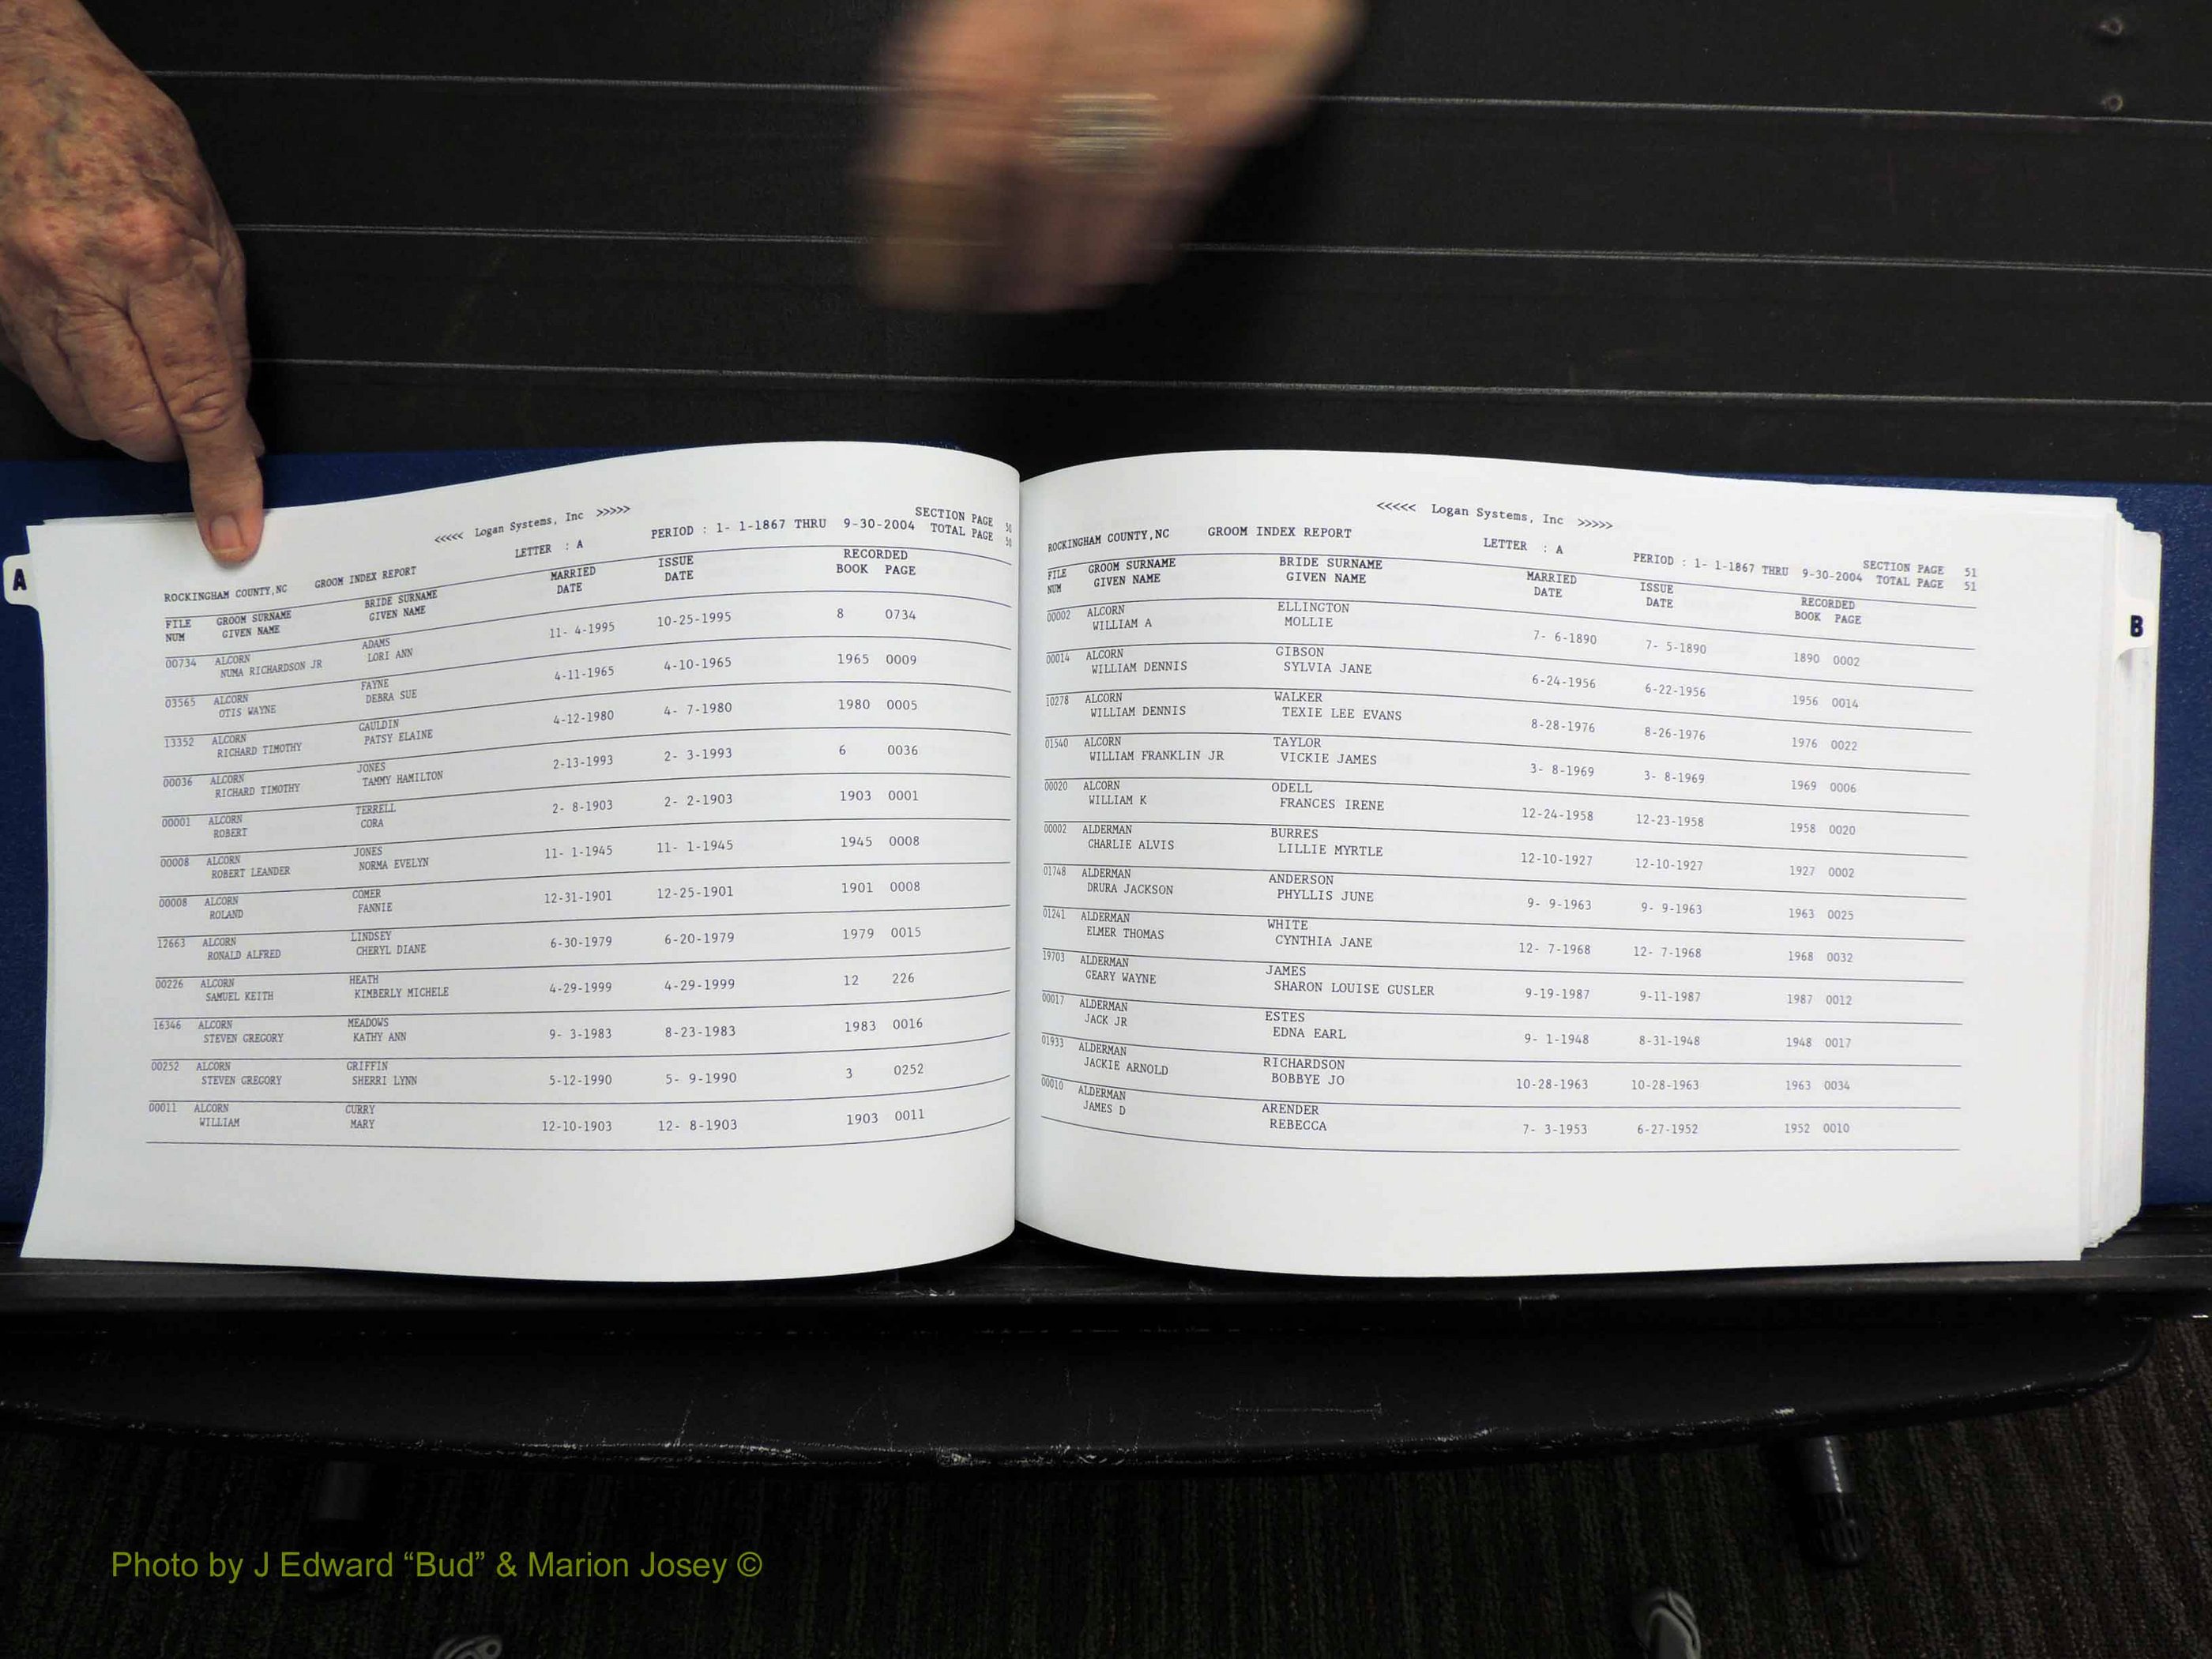 A
<<<<< Logan Systems, Inc >>>>>
SECTION PAGE 50
ROCKINGHAM COUNTY,NC GROOM INDEX REPORT LETTER : A PERIOD : 1- 1-1867 THRU 9-30-2004 TOTAL PAGE 50
FILE GROOM SURNAME BRIDE SURNAME MARRIED ISSUE RECORDED
NUM GIVEN NAME GIVEN NAME DATE DATE BOOK PAGE
00734 ALCORN ADAMS
NUMA RICHARDSON JR LORI ANN 11- 4-1995 10-25-1995 8 0734
03565 ALCORN FAYNE
OTIS WAYNE DEBRA SUE 4-11-1965 4-10-1965 1965 0009
13352 ALCORN GAULDIN
RICHARD TIMOTHY PATSY ELAINE 4-12-1980 4- 7-1980 1980 0005
00036 ALCORN JONES
RICHARD TIMOTHY TAMMY HAMILTON 2-13-1993 2- 3-1993 6 0036
00001 ALCORN TERRELL
ROBERT CORA 2- 8-1903 2- 2-1903 1903 0001
00008 ALCORN JONES
ROBERT LEANDER NORMA EVELYN 11- 1-1945 11- 1-1945 1945 0008
00008 ALCORN COMER
ROLAND FANNIE 12-31-1901 12-25-1901 1901 0008
12663 ALCORN LINDSEY
RONALD ALFRED CHERYL DIANE 6-30-1979 6-20-1979 1979 0015
00226 ALCORN HEATH
SAMUEL KEITH KIMBERLY MICHELE 4-29-1999 4-29-1999 12 226
16346 ALCORN MEADOWS
STEVEN GREGORY KATHY ANN 9- 3-1983 8-23-1983 1983 0016
00252 ALCORN GRIFFIN
STEVEN GREGORY SHERRI LYNN 5-12-1990 5- 9-1990 3 0252
00011 ALCORN CURRY
WILLIAM MARY 12-10-1903 12- 8-1903 1903 0011
<<<<< Logan Systems, Inc >>>>>
SECTION PAGE 51
ROCKINGHAM COUNTY,NC GROOM INDEX REPORT LETTER : A PERIOD : 1- 1-1867 THRU 9-30-2004 TOTAL PAGE 51
FILE GROOM SURNAME BRIDE SURNAME MARRIED ISSUE RECORDED
NUM GIVEN NAME GIVEN NAME DATE DATE BOOK PAGE
00002 ALCORN ELLINGTON
WILLIAM A MOLLIE 7- 6-1890 7- 5-1890 1890 0002
00014 ALCORN GIBSON
WILLIAM DENNIS SYLVIA JANE 6-24-1956 6-22-1956 1956 0014
10278 ALCORN WALKER
WILLIAM DENNIS TEXIE LEE EVANS 8-28-1976 8-26-1976 1976 0022
01540 ALCORN TAYLOR
WILLIAM FRANKLIN JR VICKIE JAMES 3- 8-1969 3- 8-1969 1969 0006
00020 ALCORN ODELL
WILLIAM K FRANCES IRENE 12-24-1958 12-23-1958 1958 0020
00002 ALDERMAN BURRES
CHARLIE ALVIS LILLIE MYRTLE 12-10-1927 12-10-1927 1927 0002
01748 ALDERMAN ANDERSON
DRURA JACKSON PHYLLIS JUNE 9- 9-1963 9- 9-1963 1963 0025
01241 ALDERMAN WHITE
ELMER THOMAS CYNTHIA JANE 12- 7-1968 12- 7-1968 1968 0032
19703 ALDERMAN JAMES
GEARY WAYNE SHARON LOUISE GUSLER 9-19-1987 9-11-1987 1987 0012
00017 ALDERMAN ESTES
JACK JR EDNA EARL 9- 1-1948 8-31-1948 1948 0017
01933 ALDERMAN RICHARDSON
JACKIE ARNOLD BOBBYE JO 10-28-1963 10-28-1963 1963 0034
00010 ALDERMAN ARENDER
JAMES D REBECCA 7- 3-1953 6-27-1952 1952 0010
B
Photo by J Edward “Bud” & Marion Josey ©